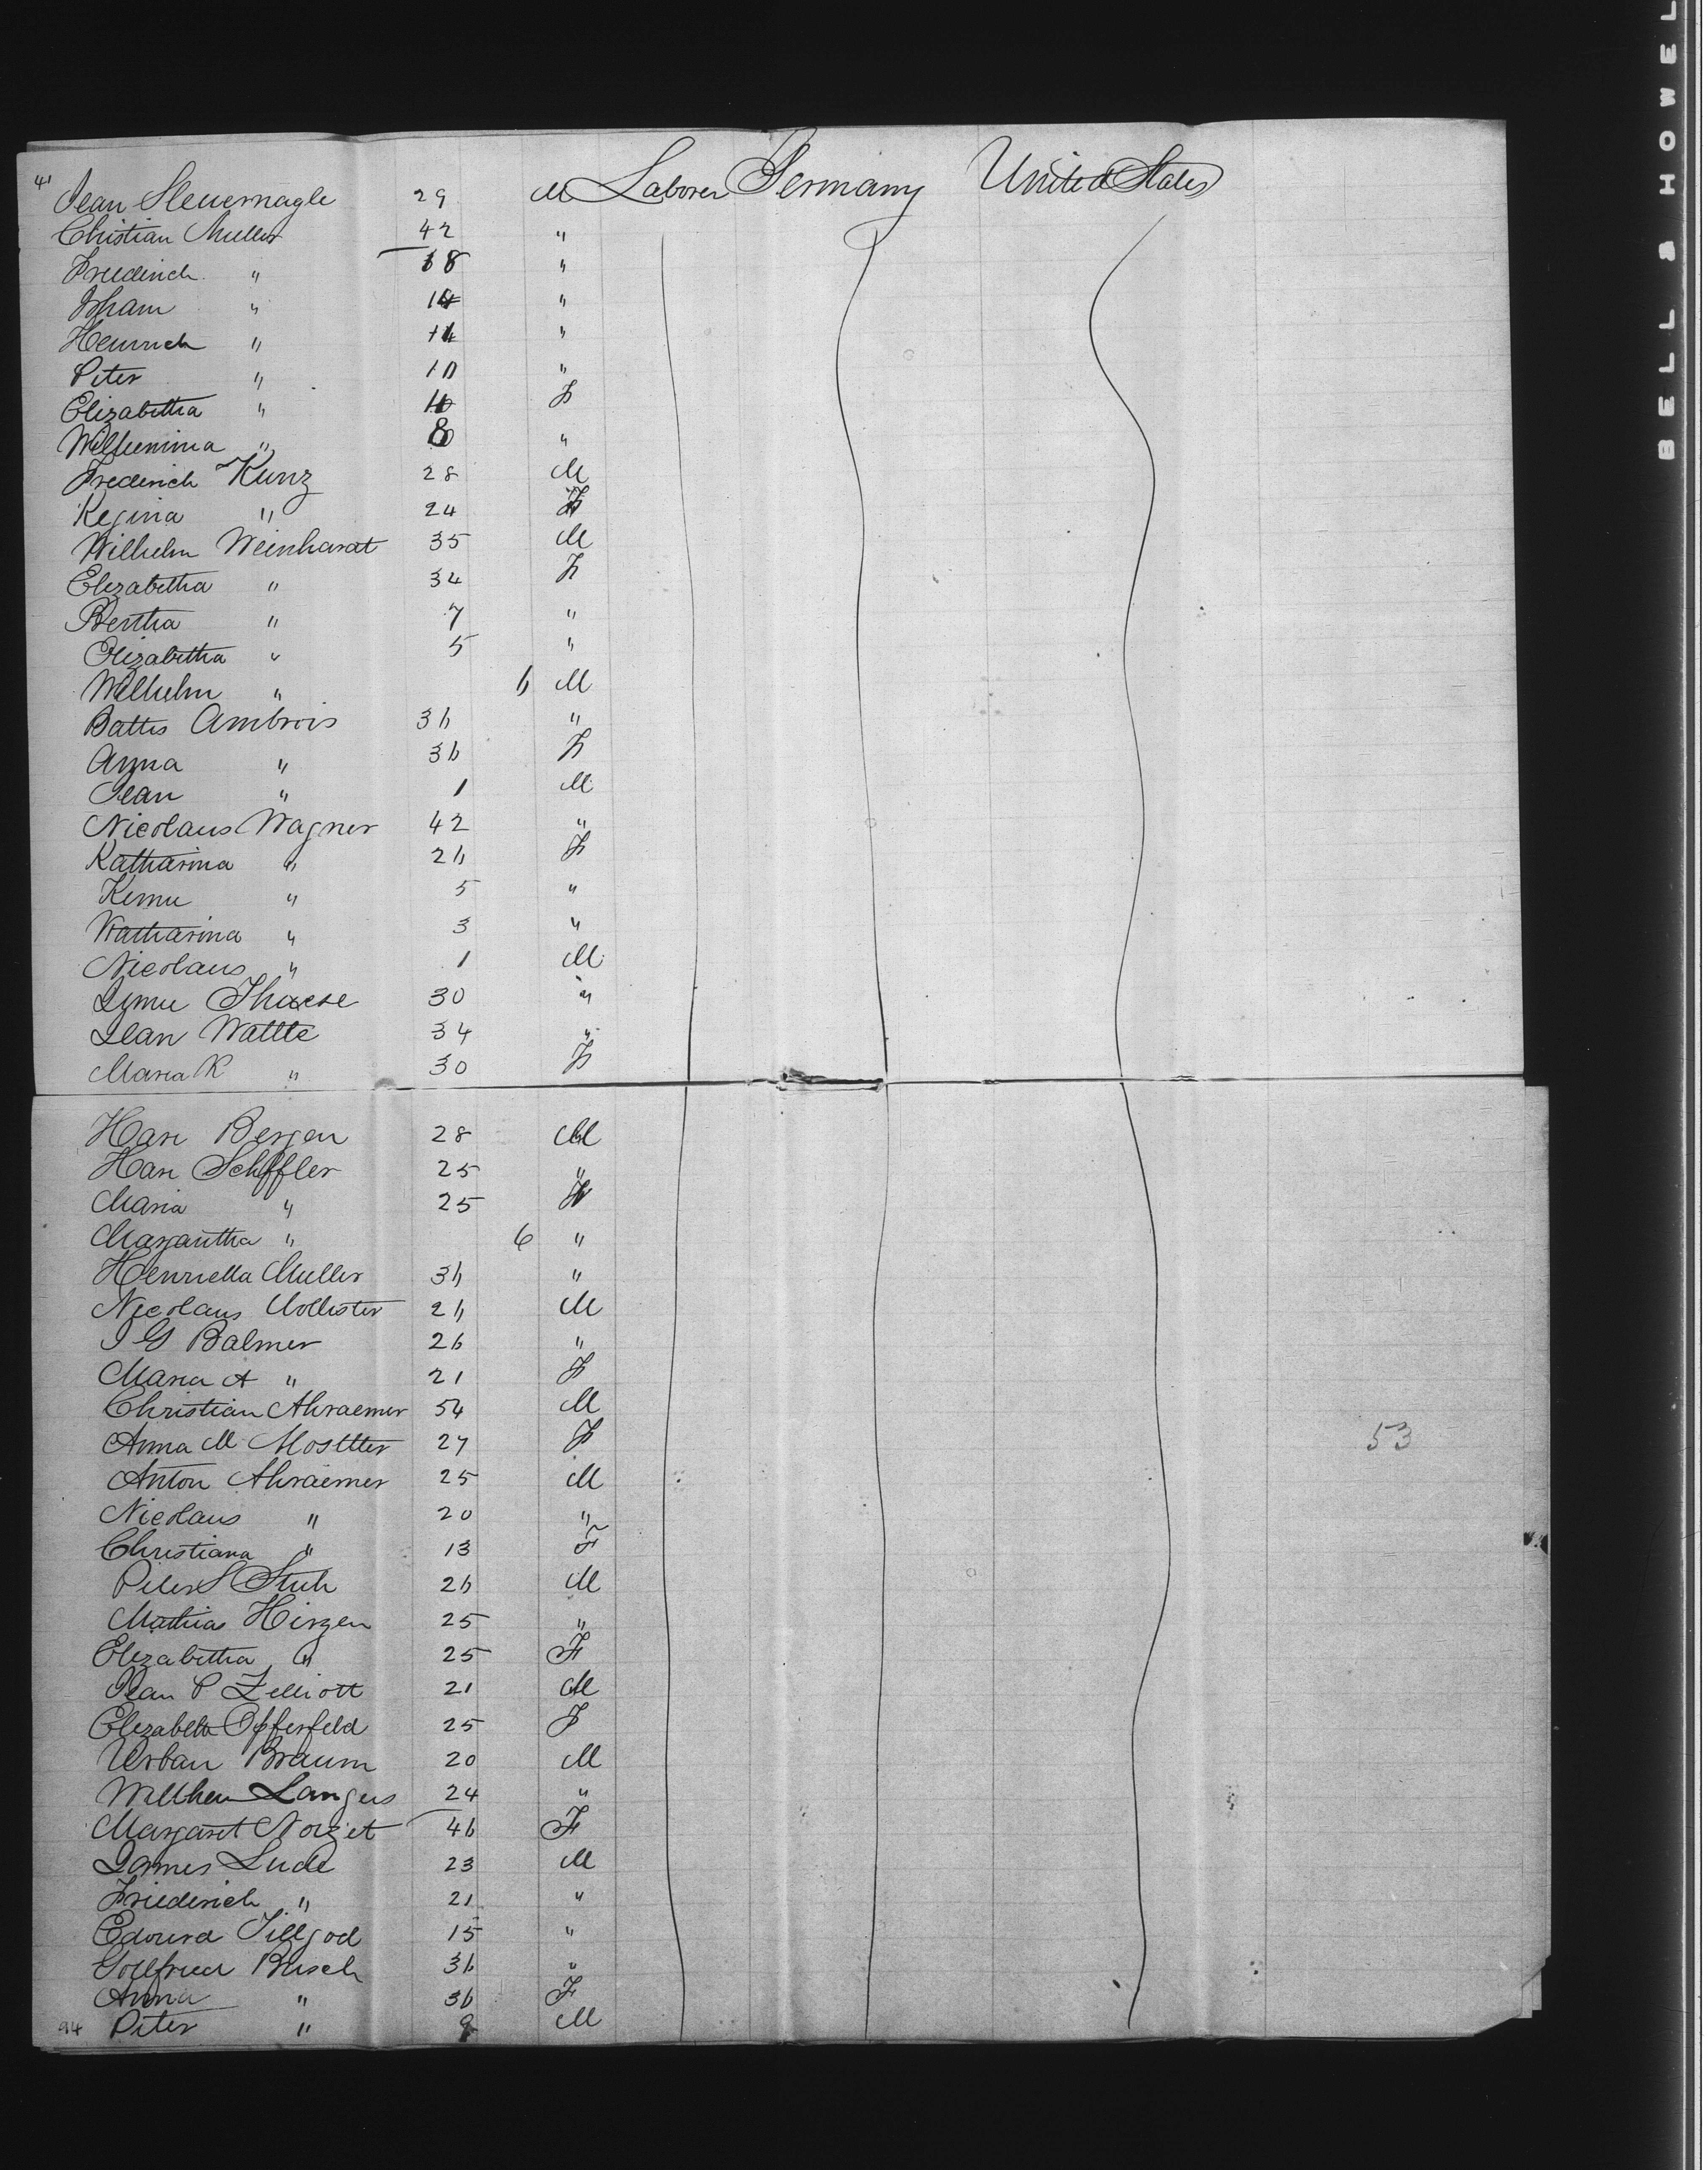 41 Jean Steuernagle 29 M Laborer Germany United States
Christian Muller 42 "
Friederich " 18 "
Isham " 14 "
Heinrich " 11 "
Peter " 10 "
Elizabetha " F
Wilhemina " 8 "
Frederich Kunz 28 M
Regina " 24 F
Wilhelm Weinhardt 35 M
Elizabetha " 34 F
Bertha " 7 "
Elizabetha " 5 "
Wilhelm " 6 M
Battis Ambrois 36 "
Anna " 36 F
Jean " 1 M
Nicolaus Wagner 42 "
Katharina " 26 F
" 5 "
Katharina " 3 "
Nicolaus " 1 M
30 "
Jean Wattte 34 "
Maria K " 30 F
Han Bergen 28 M
Han Schffler 25 "
Maria " 25 F
Margaritha " 6 "
Henrietta Muller 36 "
Nicolaus Hollister 26 M
I G Balmer 26 "
Maria A " 21 F
Christian Ahraemer 54 M
Anna M Mosttter 27 F
53
Anton Ahraemer 25 M
Nicolaus " 20 "
Christiana " 13 F
Peter S Stuh 26 M
Mathias Hirgen 25 "
Elizabetha " 25 F
Jean P Zelliott 21 M
Elizabeth Opferfeld 25 F
Urban Braum 20 M
Willhem Langus 24 "
Margaret Noizet 46 F
James Lude 23 M
Friederich " 21 "
Edourd Tillgod 15 "
Gottfried Busch 36 "
Anna " 36 F
94 Peter " 9 M
BELL & HOWEL